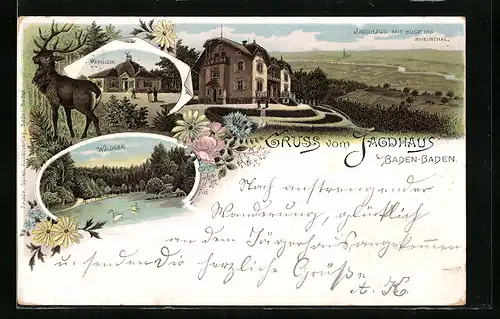 PAVILLON.
JAGDHAUS MIT BLICK INS
RHEINTHAL.
GRUSS VOM JAGDHAUS
B/BADEN-BADEN.
WALDSEE.
Nach anstrengender
Wanderung, glücklich
an dem Jägerhaus angekommen
u. senden Dir herzliche Grüße
A. K.